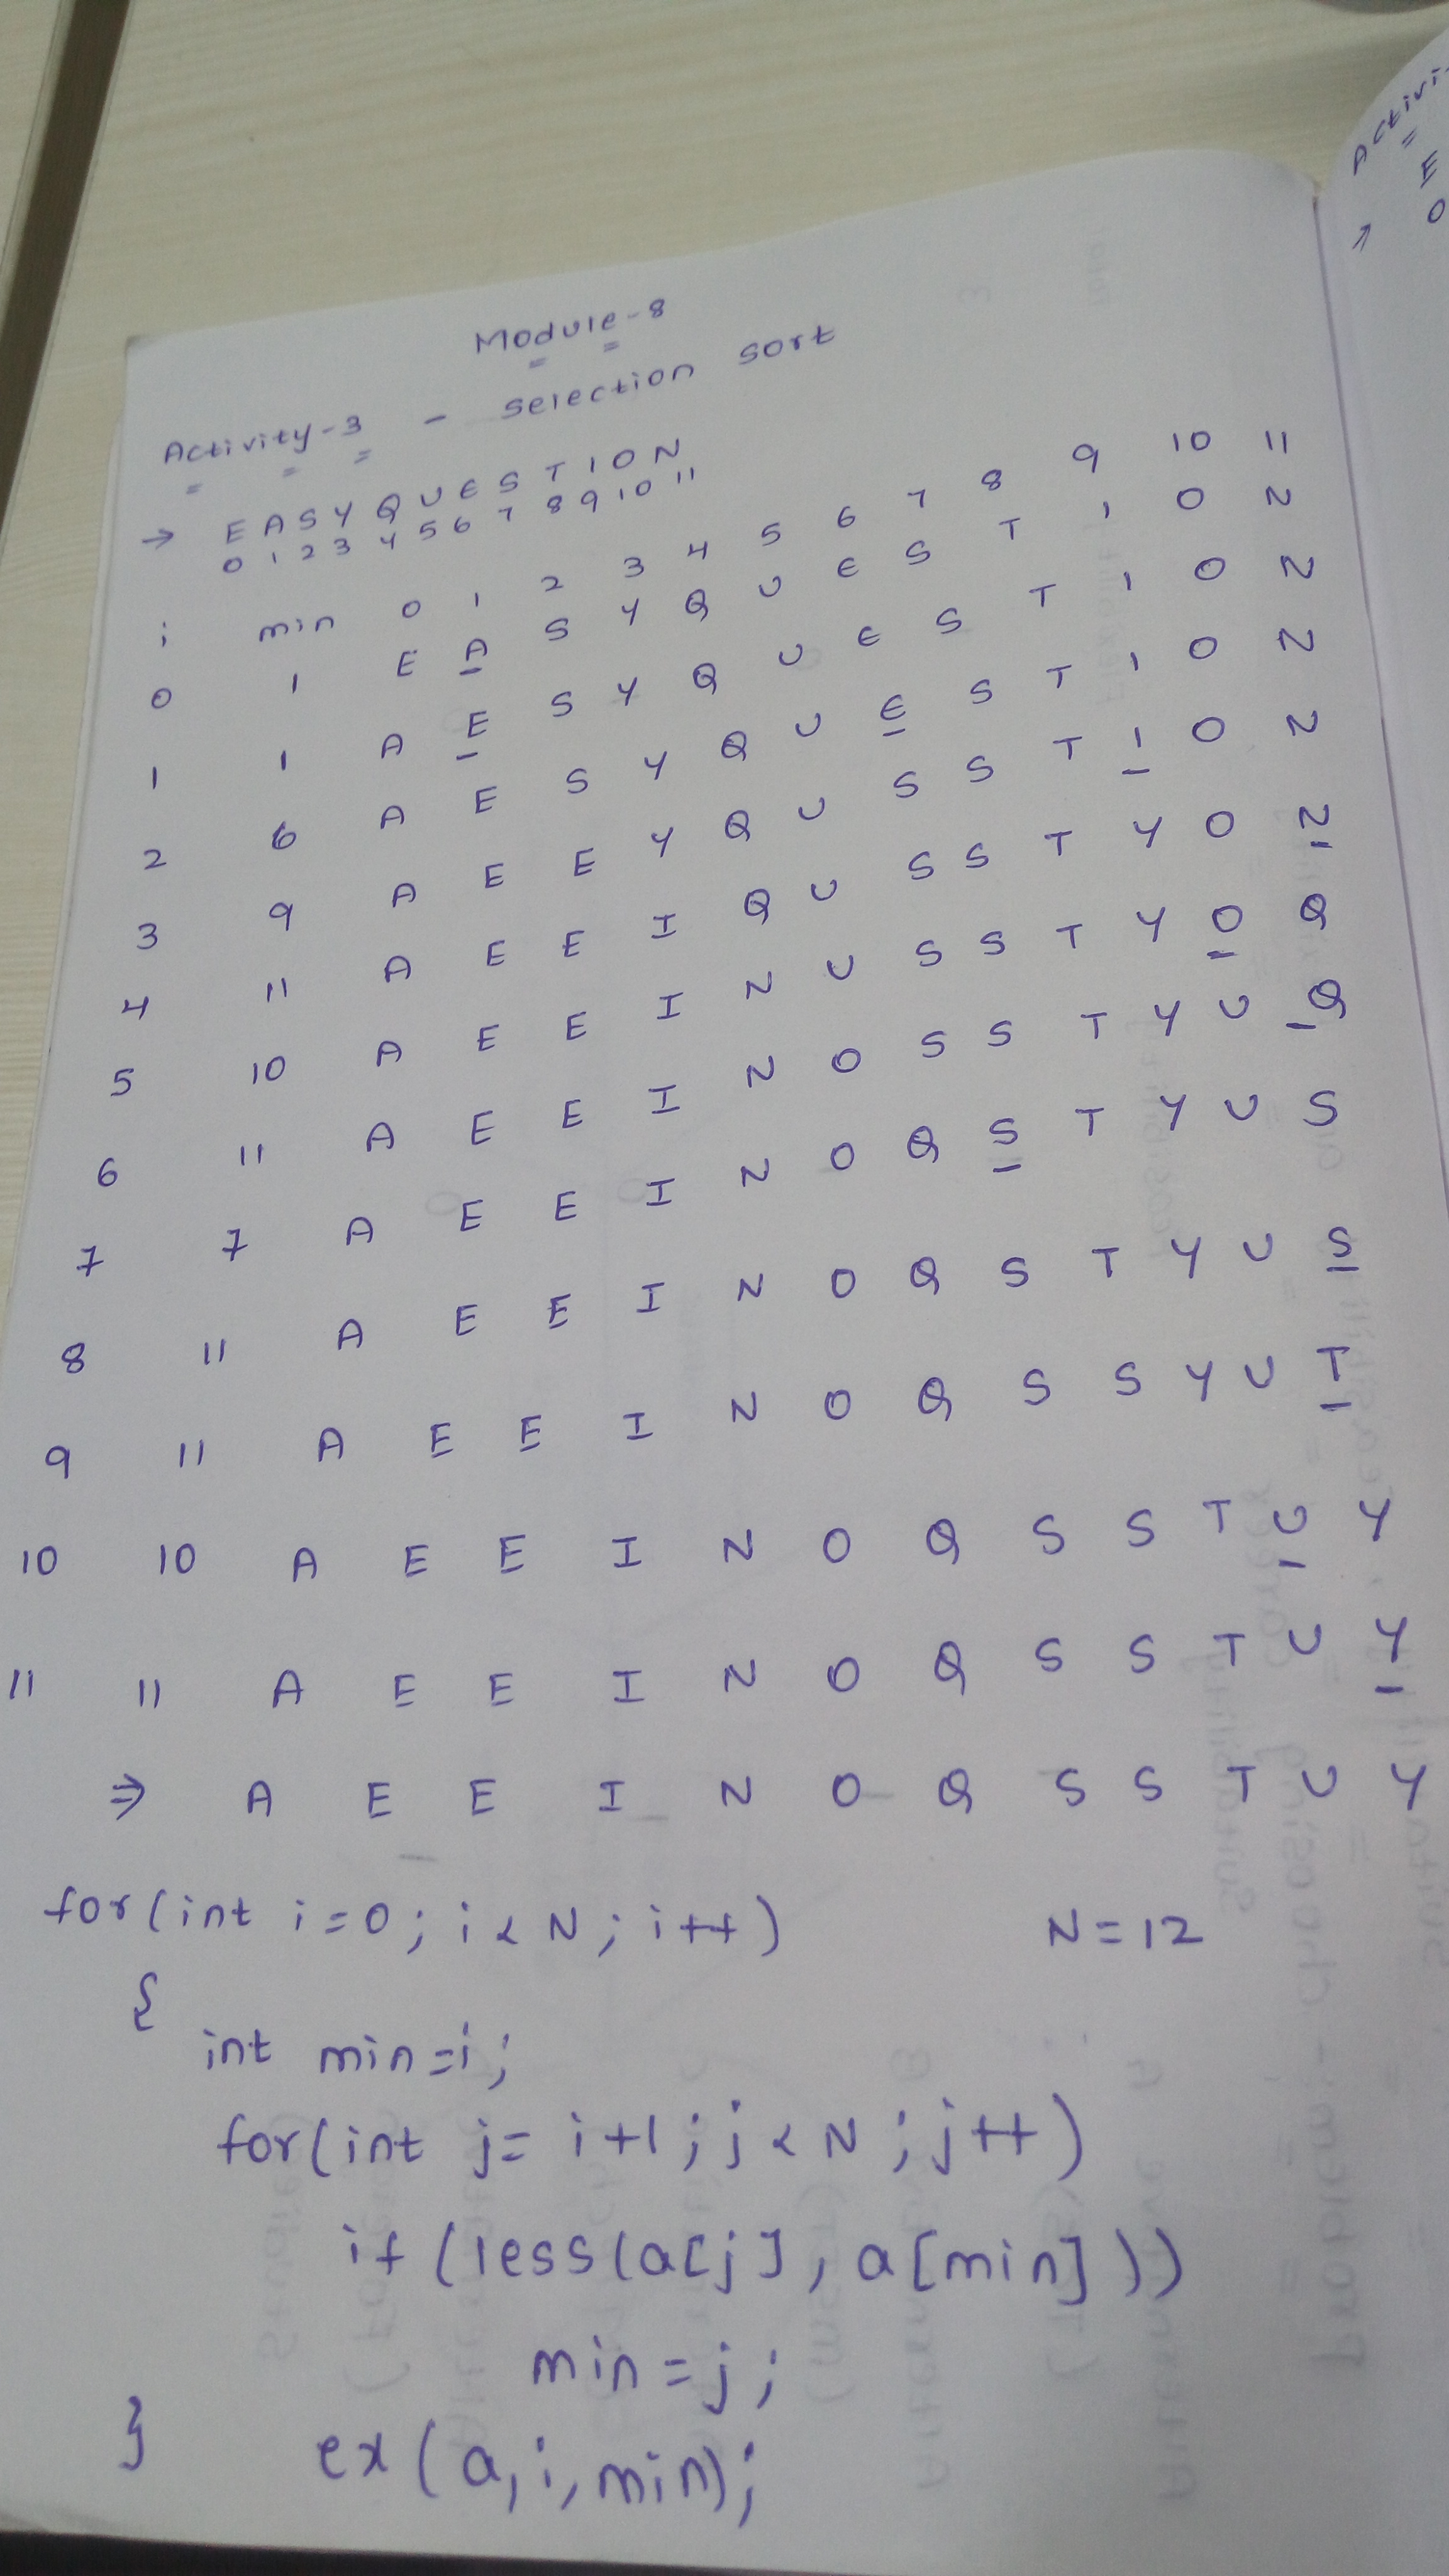 Module-8
Activity-3 - Selection sort
→ E A S Y Q U E S T I O N
0 1 2 3 4 5 6 7 8 9 10 11
i min 0 1 2 3 4 5 6 7 8 9 10 11
0 1 E A S Y Q U E S T I O N
1 1 A E S Y Q U E S T I O N
2 6 A E S Y Q U E S T I O N
3 9 A E E Y Q U S S T I O N
4 11 A E E I Q U S S T Y O N
5 10 A E E I N U S S T Y O Q
6 11 A E E I N O S S T Y U Q
7 7 A E E I N O Q S T Y U S
8 11 A E E I N O Q S T Y U S
9 11 A E E I N O Q S S Y U T
10 10 A E E I N O Q S S T U Y
11 11 A E E I N O Q S S T U Y
⇒ A E E I N O Q S S T U Y
for(int i=0; i< N; i++) N=12
{
int min=i;
for(int j= i+1; j< N; j++)
if (less(a[j], a[min]))
min=j;
} ex(a,i,min);
Activi
E
→ 0